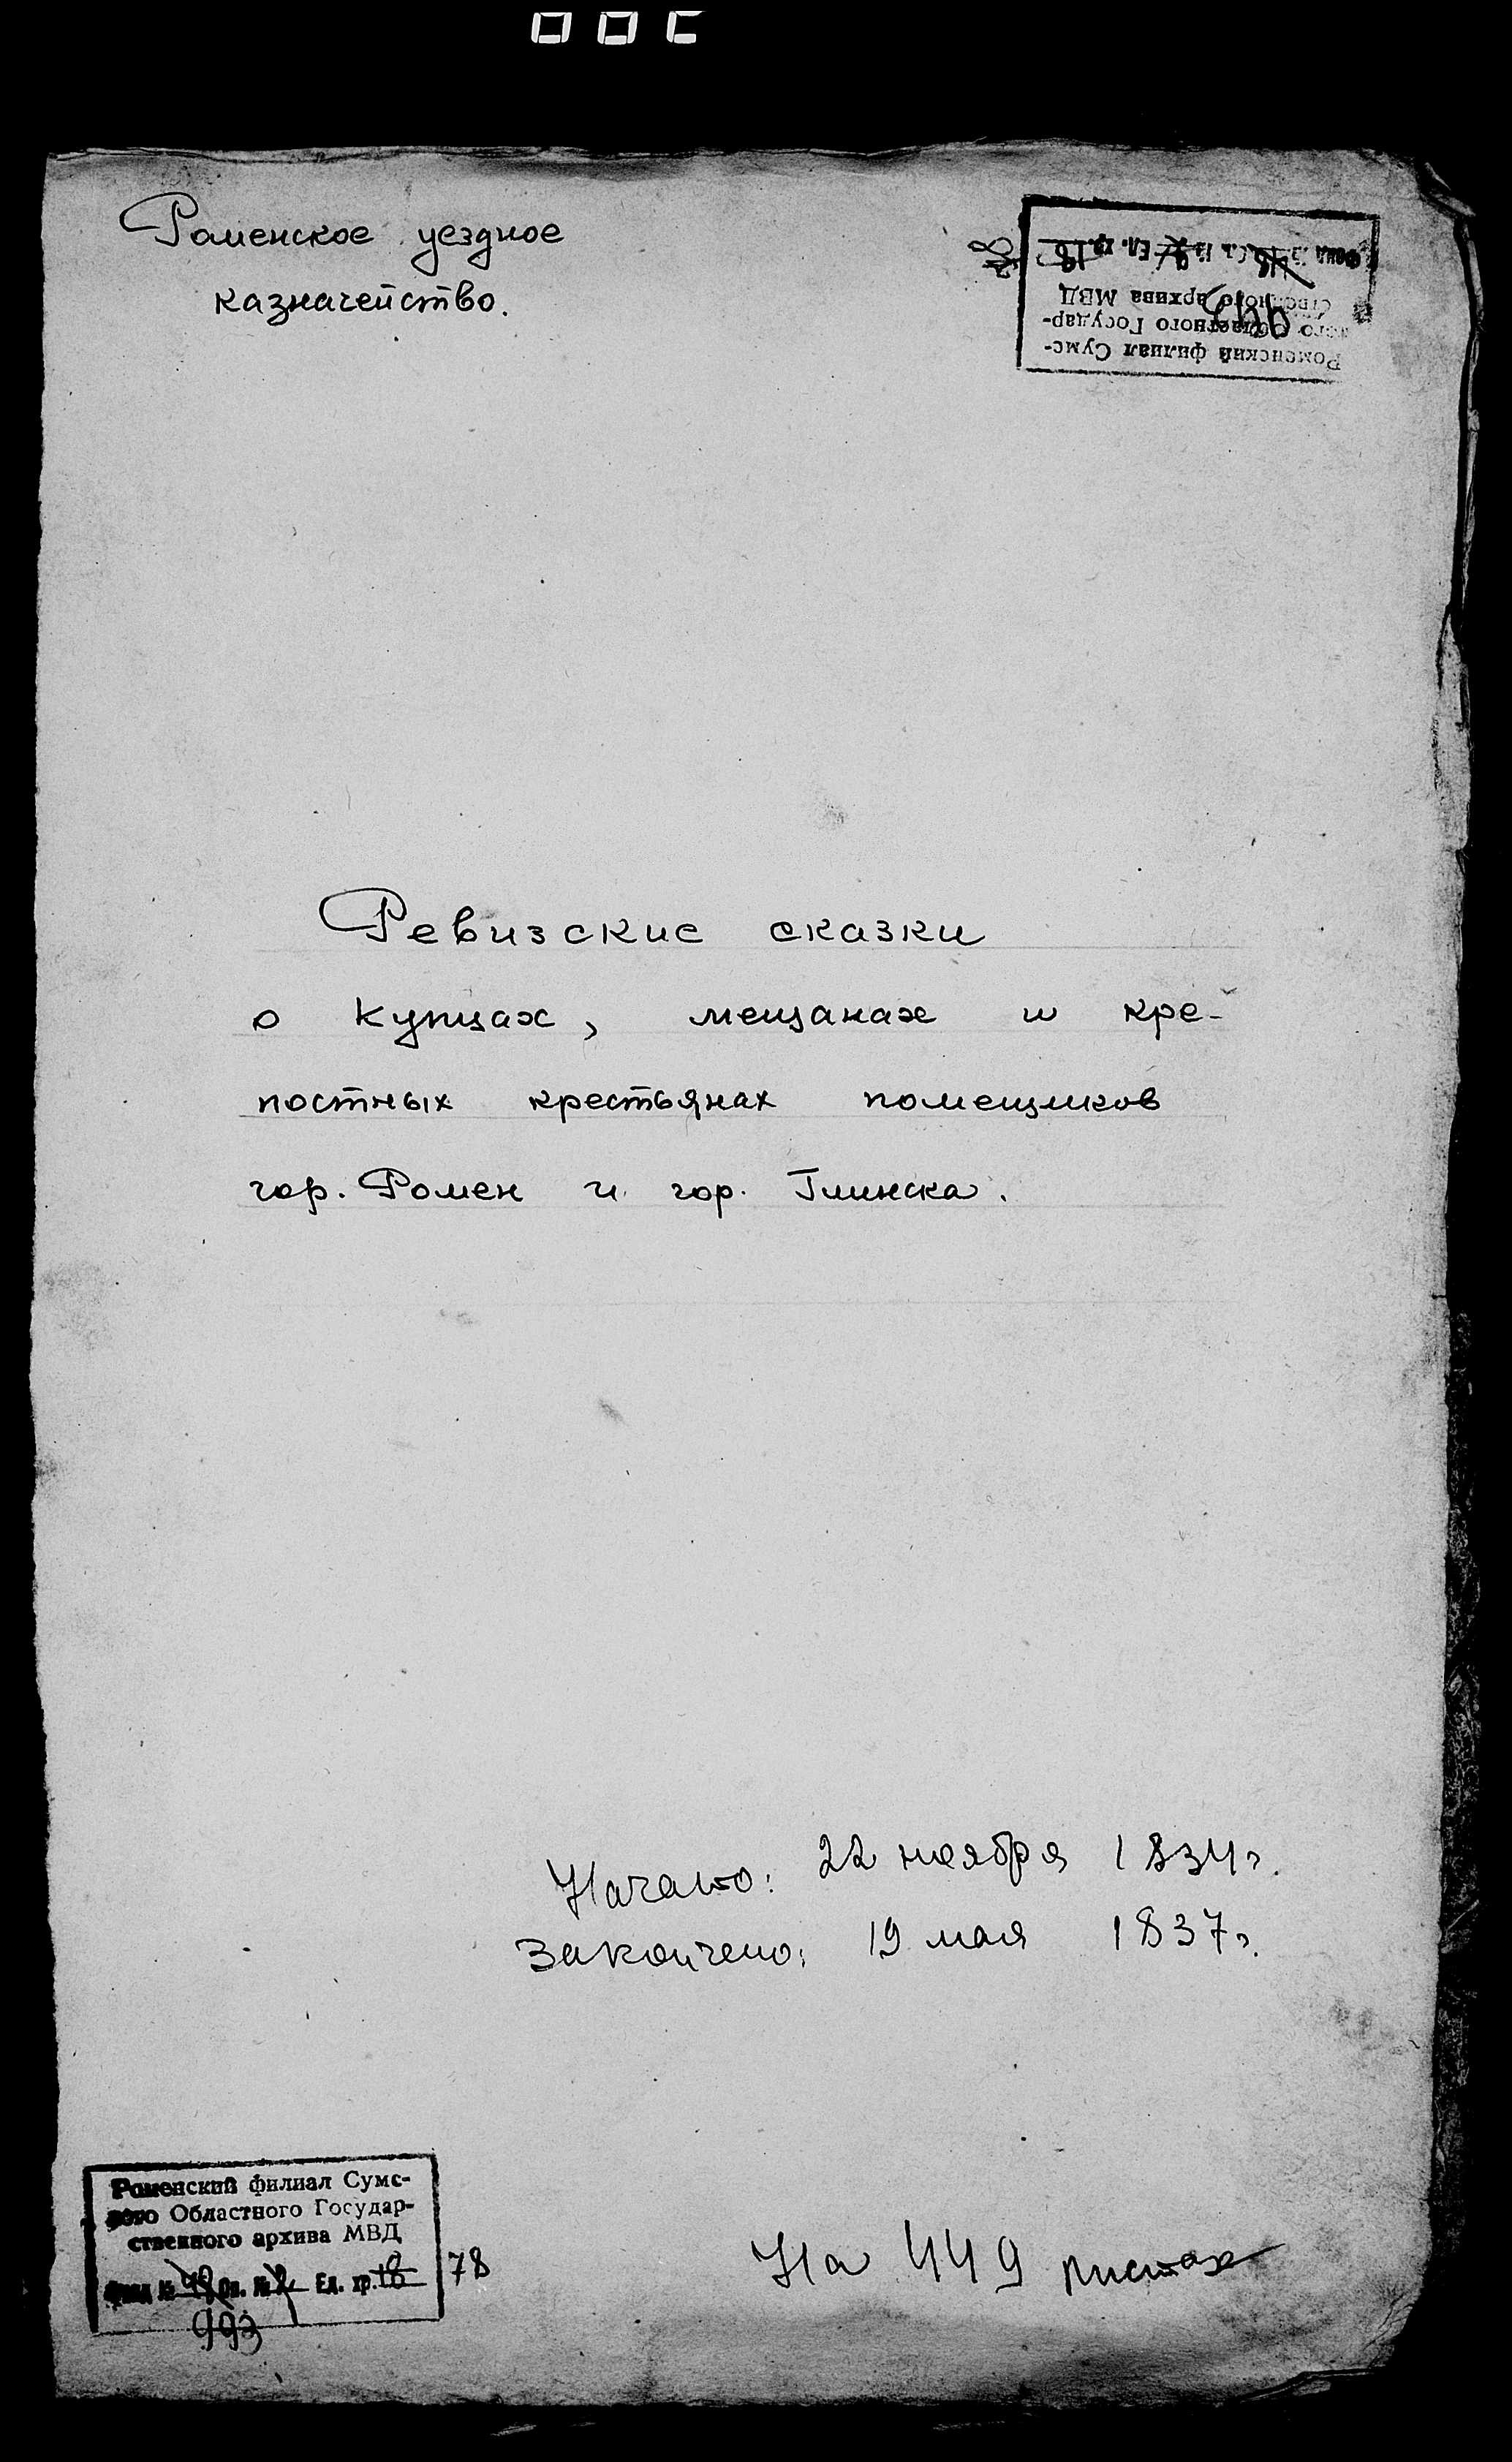 Роменское уездное
казначейство.
Роменский филиал Сумс-
кого Областного Государ-
ственного архива МВД
Фонд № 48 Оп. № 2 Ед. хр. 18
993
Ревизские сказки
о купцах, мещанах и кре-
постных крестьянах помещиков
гор. Ромен и гор. Глинска.
Начато: 22 ноября 1834 г.
Закончено: 19 мая 1837 г.
Роменский филиал Сумс-
кого Областного Государ-
ственного архива МВД
Фонд № Оп. № Ед. хр. 18 78
993
На 449 листах